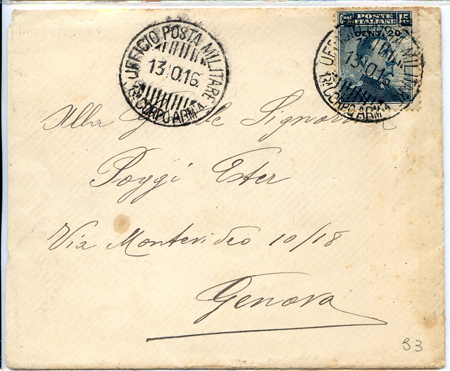 UFFICIO POSTA MILITARE
13.10.16
13° CORPO ARMA
POSTE ITALIANE
15
CENT. 20
UFFICIO POSTA MILITARE
13.10.16
13° CORPO ARMA
Alla Gentile Signorina
Poggi Ester
Via Montevideo 10/18
Genova
93